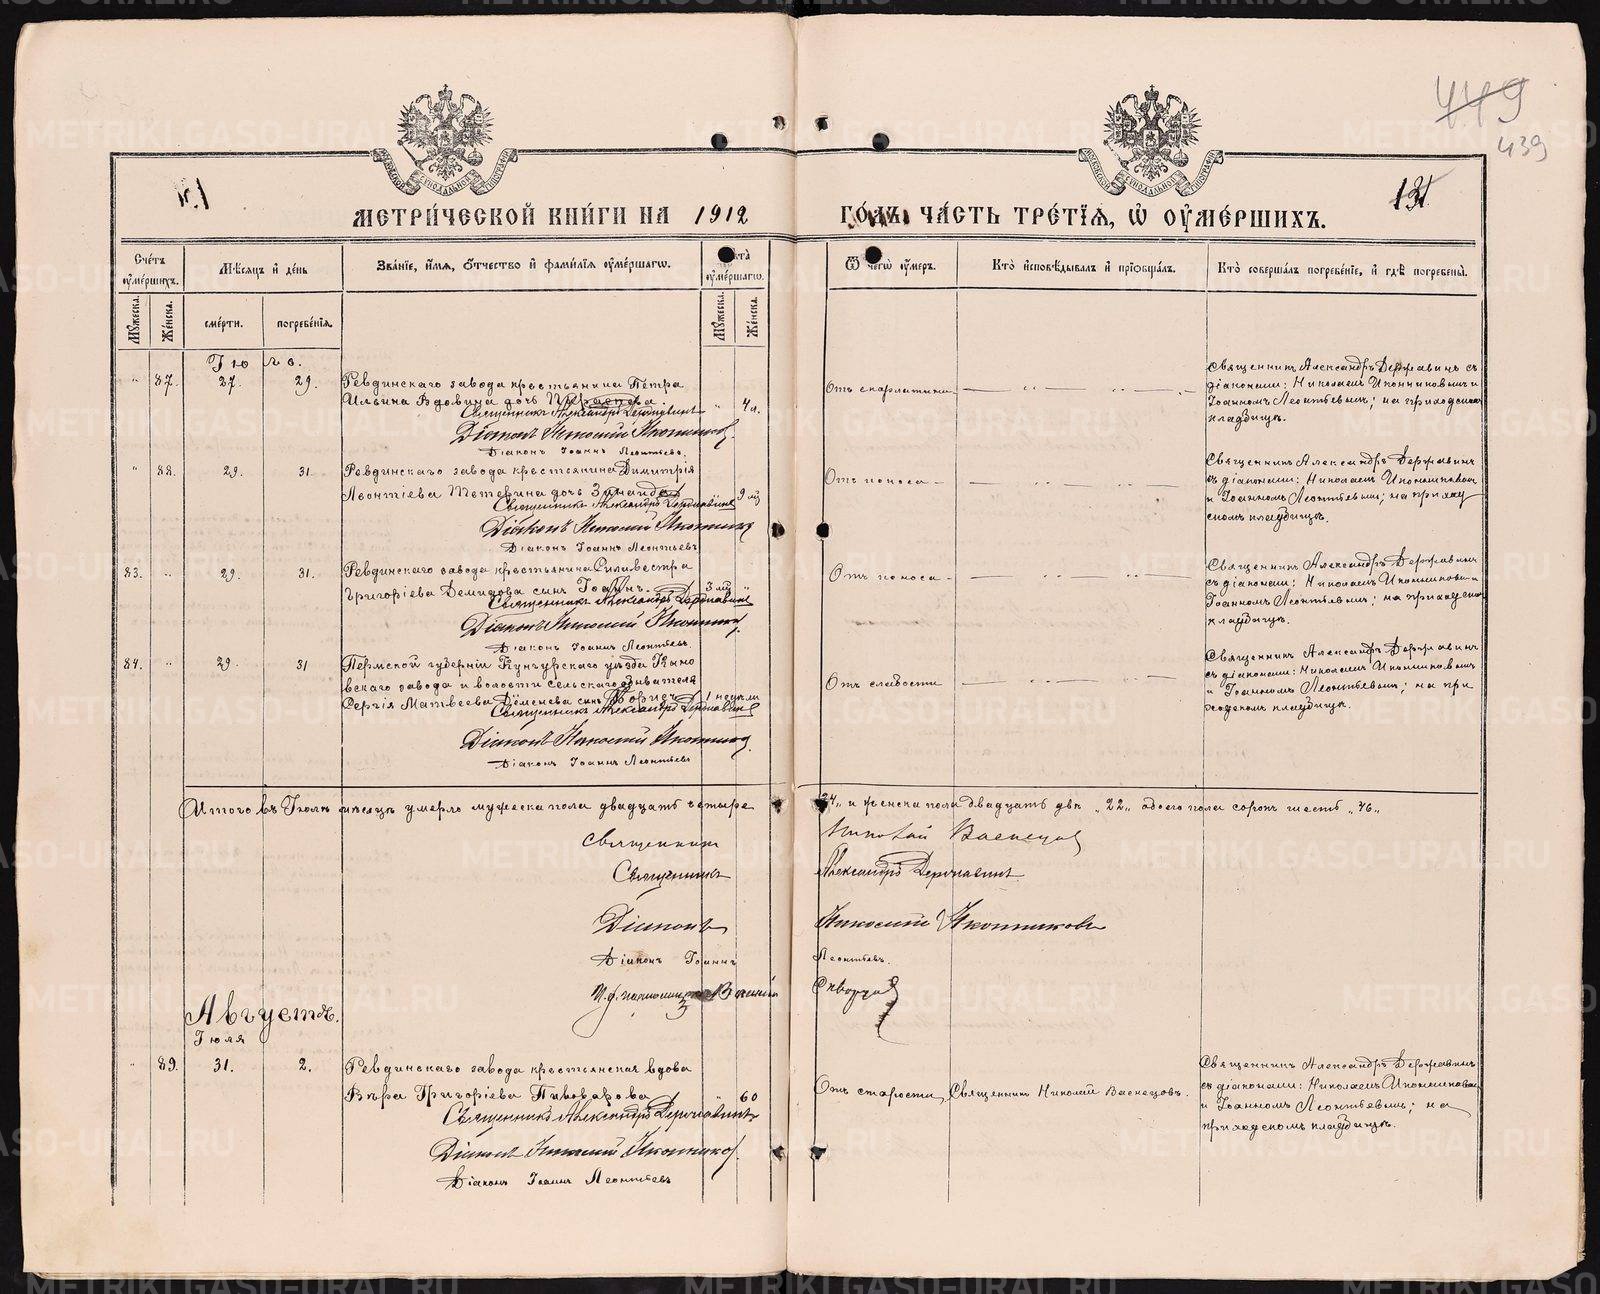 449
439
131
131
МЕТРИ́ЧЕСКОЙ КНИ́ГИ НА 1912
ГО́ДЪ ЧА́СТЬ ТРЕ́ТІѦ, Ѡ ОУМЕ́РШИХЪ.
Сче́тъ оуме́ршихъ.
Мѣ́сяцъ и де́нь
Зва́ніе, и́мя, о́тчество и фами́лія оуме́ршагѡ.
оуме́ршагѡ.
Ѿ чегѡ̀ оу́меръ.
Кто̀ исповѣ́дывалъ и пріѡбща́лъ.
Кто̀ соверша́лъ погребе́ніе, и гдѣ̀ погребены̀.
Му́жеска.
Же́нска.
сме́рти.
погребе́нія.
Му́жеска.
Же́нска.
Іюль.
" 87. 27. 29. Ревдинскаго завода крестьянина Петра
Ильина Вдовина дочь " 4 л.
Священникъ Александръ Державинъ
Діаконъ Николай Иконниковъ.
Діаконъ Іоаннъ Леонтьевъ.
Отъ скарлатины
Священникъ Александръ Державинъ съ
діаконами: Николаемъ Иконниковымъ и
Іоанномъ Леонтьевымъ; на приходскомъ
кладбищѣ.
" 88. 29. 31. Ревдинскаго завода крестьянина Димитрія
Леонтіева Тетерина дочь Зинаида " 9 мц
Священникъ Александръ Державинъ
Діаконъ Николай Иконниковъ
Діаконъ Іоаннъ Леонтьевъ
Отъ поноса
Священникъ Александръ Державинъ
съ діаконами: Николаемъ Иконниковымъ
и Іоанномъ Леонтьевымъ; на приход
скомъ кладбищѣ.
83. " 29. 31. Ревдинскаго завода крестьянина Силивестра
Григоріева Демидова сынъ Іоаннъ. 3 мц "
Священникъ Александръ Державинъ
Діаконъ Николай Иконниковъ.
Діаконъ Іоаннъ Леонтьевъ.
Отъ поноса
Священникъ Александръ Державинъ
съ діаконами: Николаемъ Иконниковымъ и
Іоанномъ Леонтьевымъ; на приходскомъ
кладбищѣ.
84. " 29. 31 Пермской губерніи Кунгурскаго уѣзда Кыно
вскаго завода и волости сельскаго обывателя
Сергія Матвеева Деменева сынъ Борисъ 1 недѣли
Священникъ Александръ Державинъ
Діаконъ Николай Иконниковъ.
Діаконъ Іоаннъ Леонтьевъ
Отъ слабости
Священникъ Александръ Державинъ
съ діаконами: Николаемъ Иконниковымъ
и Іоанномъ Леонтьевымъ; на при
ходскомъ кладбищѣ.
Итого въ Іюлѣ мѣсяцѣ умерло мужеска пола двадцать четыре "24" и женска пола двадцать двѣ "22" обоего пола сорокъ шесть "46"
Священникъ Николай Васнецовъ
Священникъ Александръ Державинъ
Діаконъ Николай Иконниковъ
Діаконъ Іоаннъ Леонтьевъ.
И. д. псаломщика Скворцовъ
Августъ.
Іюля
" 89. 31. 2. Ревдинскаго завода крестьянская вдова
Вѣра Григоріева Пивоварова " 60
Священникъ Александръ Державинъ
Діаконъ Николай Иконниковъ.
Діаконъ Іоаннъ Леонтьевъ
Отъ старости
Священникъ Николай Васнецовъ.
Священникъ Александръ Державинъ
съ діаконами: Николаемъ Иконниковымъ
и Іоанномъ Леонтьевымъ; на
приходскомъ кладбищѣ.
METRIKI.GASO-URAL.RU